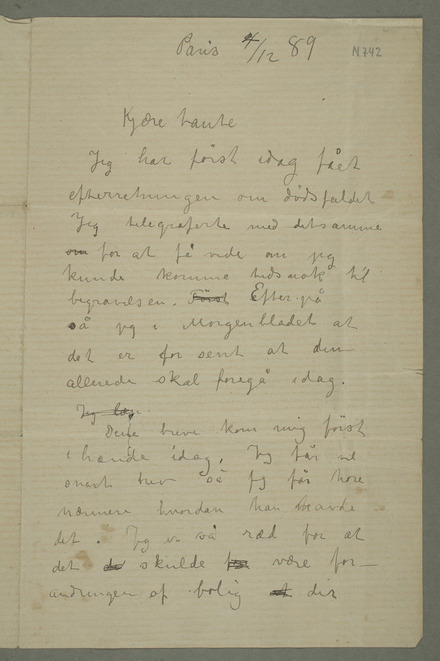 Paris 4/12 89
N 742
Kjære tante
Jeg har först idag fået
efterretningen om dödsfaldet
Jeg telegraferte med detsamme
om for at få vide om jeg
kunde komme tidsnok til
begravelsen. Först Efter på
så jeg i Morgenbladet at
det er for sent at den
allerede skal foregå idag.
Jeg
Dette brev kom mig först
ihænde idag, Jeg får vel
snart brev så jeg får höre
nærmere hvordan han havde
det. Jeg er så ræd for at
det skulde være for-
andringen af bolig